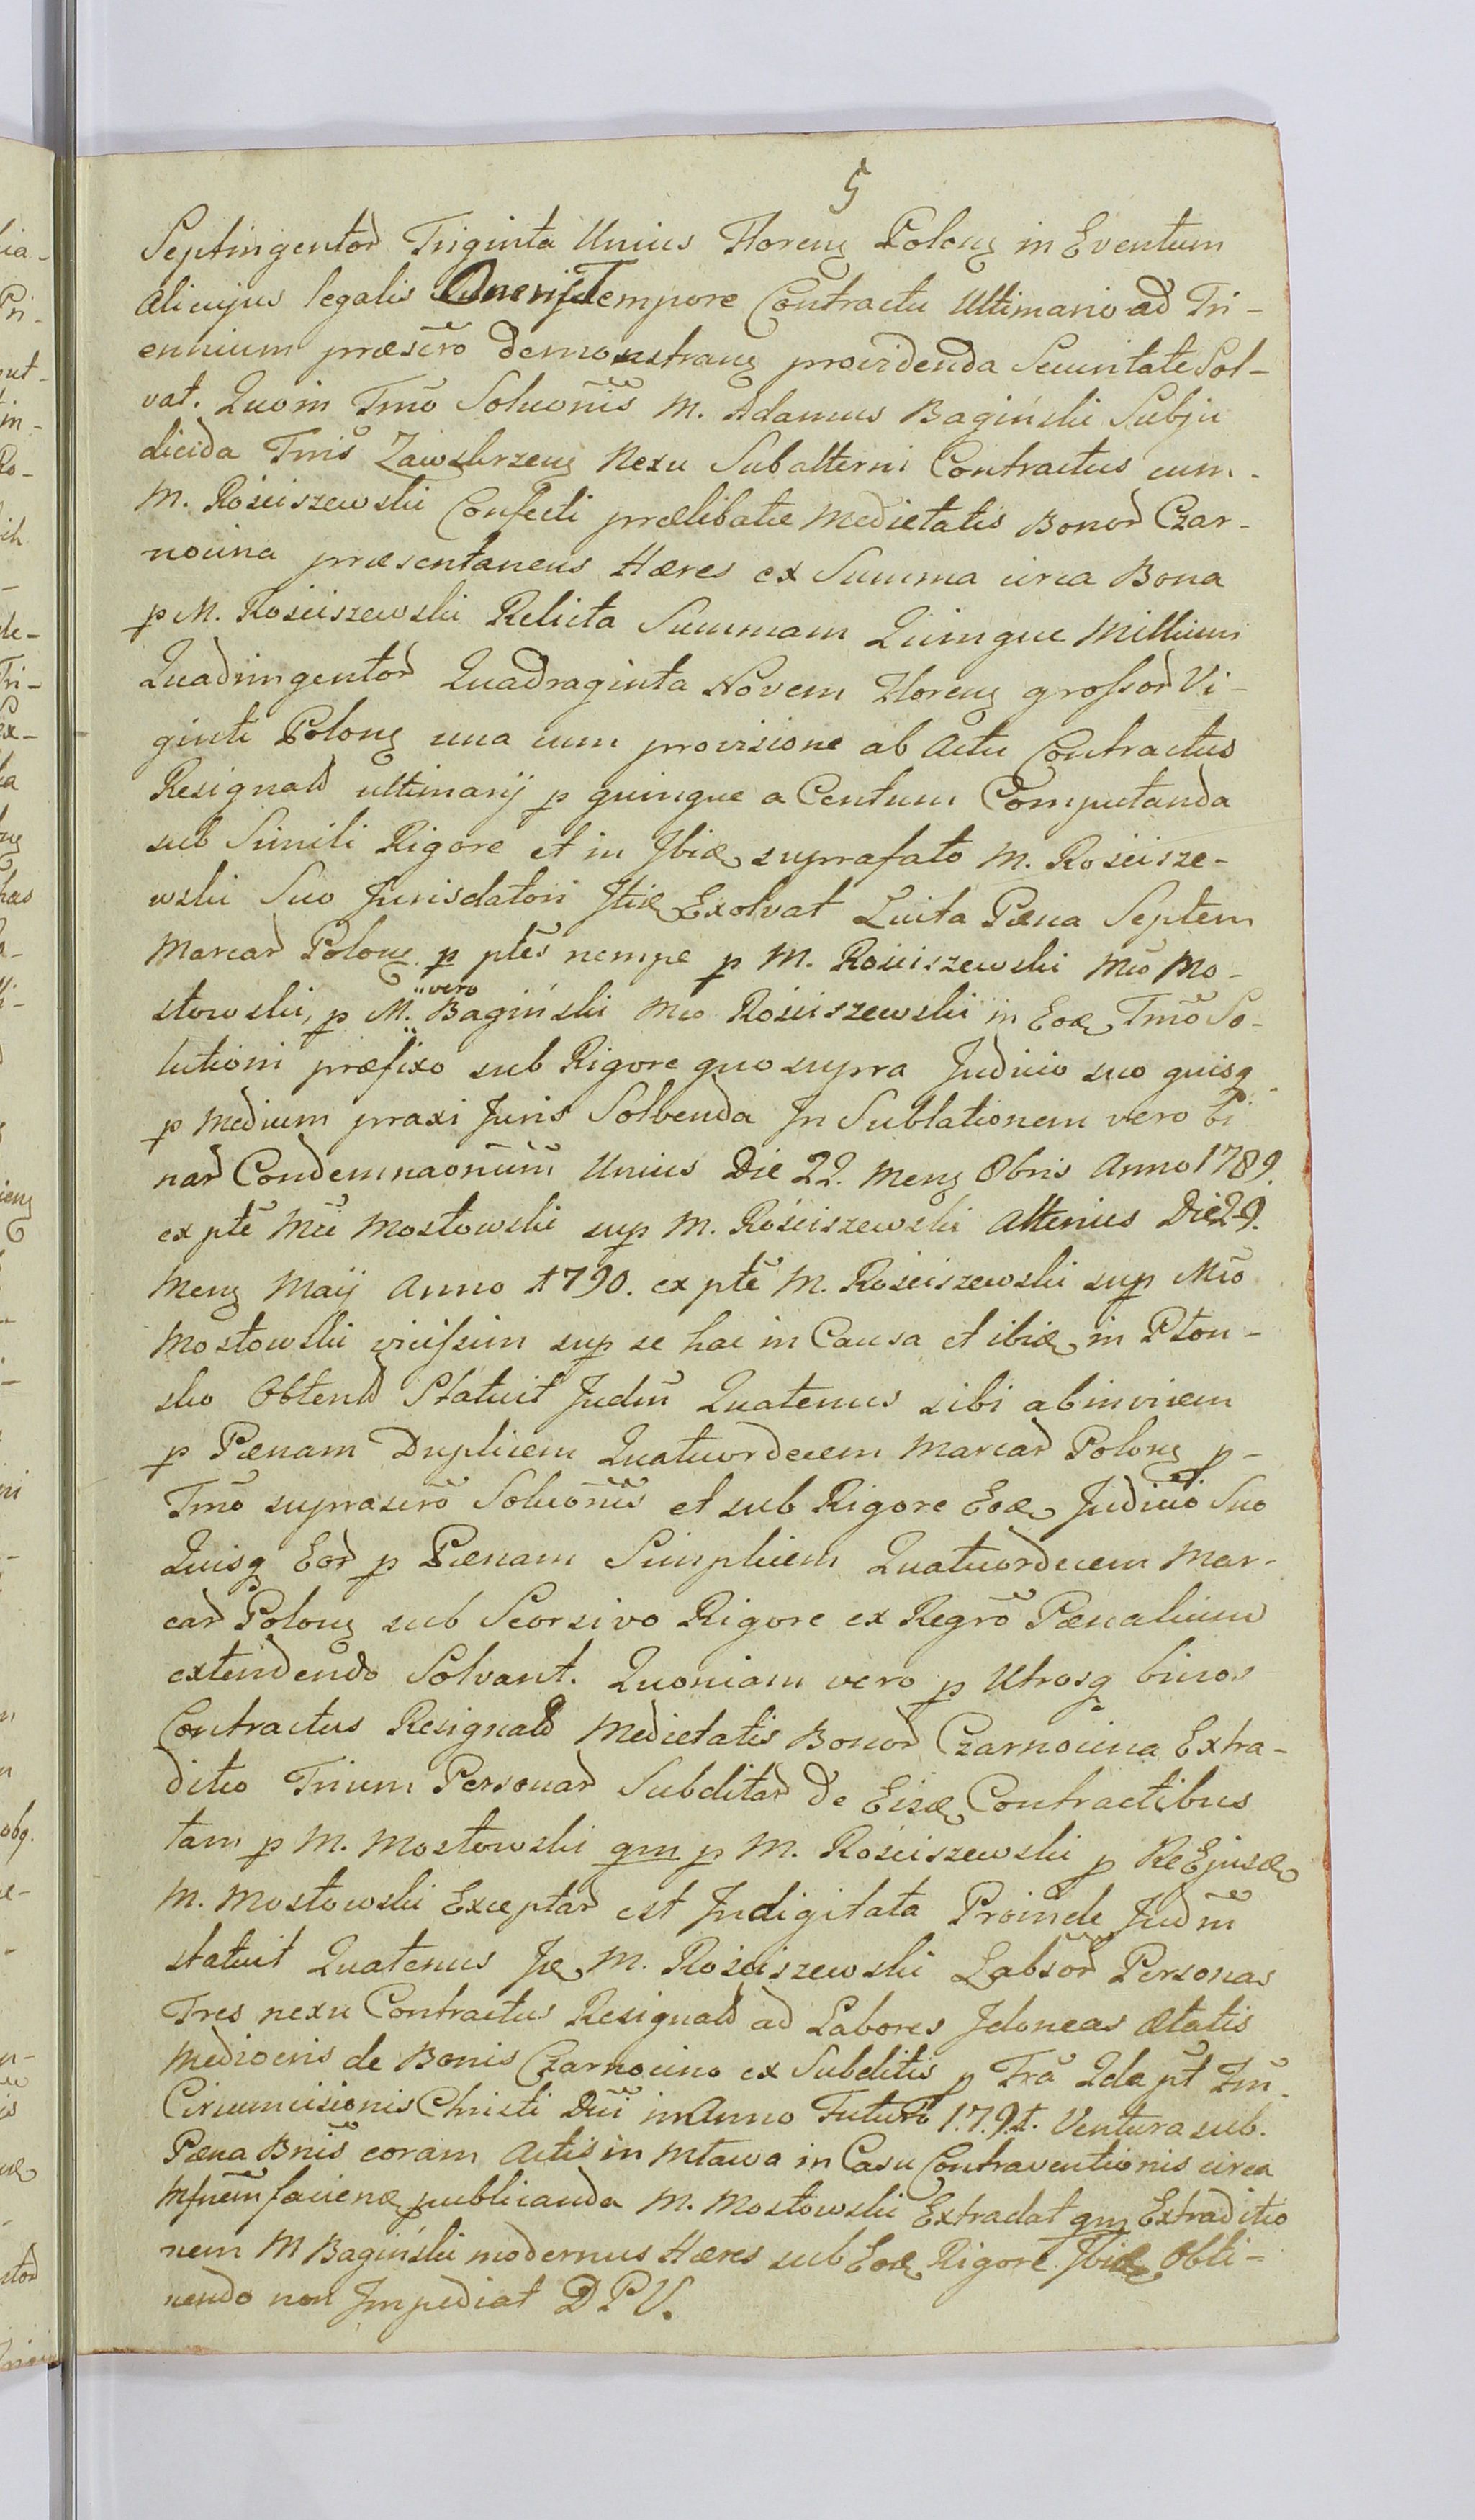 5
Septingentor Triginta Unius Floreng Polong in Eventum
alicujus legalis Oneris Tempore Contractu Ultimario ad Tri-
ennium præscrõ demonstrang providenda Securitate Sol-
vat. Quo in Tm̃o Soluõnis M. Adamus Bagiński Subju
dicida Tm̃s Zawskrzeng Nexu Subalterni Contractus cum
M. Rościszewski Confecti prælibatæ Medietatis Bonor Czar-
nocina præsentaneus Hæres ex Summa circa Bona
p M. Rosciszewski Relicta Summam Quinque Millium
Quadringentor Quadraginta Novem Floreng grossor Vi-
ginti Polong una cum provisione ab Actu Contractus
Resignald ultimarij p quinque a Centum Computanda
sub Simili Rigore et in Ibid suprafato M. Roscisze-
wski Suo Jurisdatori Itid Exolvat Luita Pæna Septem
Marcar Polong p ptes nempe p M. Rościszewski Mco Mo-
stowski, p M. vero Bagiński Mco Rościszewski in Eod Tm̃o So-
lutioni præfixo sub Rigore quo supra Judicio suo quisq
p Medium praxi Juris Solvenda In Sublationem vero Bi
nar Condemnaonum Unius Die 22. Meng 8bris Anno 1789.
ex pte Mci Mostowski sup M. Rosciszewski Alterius Die 29.
Meng Maij Anno 1790. ex pte M. Rosciszewski sup Mco
Mostowski vicissim sup se hac in Causa et ibid in Płon-
sko Obtend Statuit Judm Quatenus sibi abinvicem
p Pænam Duplicem Quatuordecem Marcar Polong p-
Tm̃o suprascrõ Soluõnis et sub Rigore Eod Judicio et. Suo
Quisq Eor p Pænam Simplicem Quatuordecem Mar-
car Polong sub Seorsivo Rigore ex Regrõ Pænalium
extendendo Solvant. Quoniam vero p Utrosq binos
Contractus Resignald Medietatis Bonor Czarnocina Extra-
ditio Trium Personar Subditar de Eisd Contractibus
tam p M. Mostowski qm p M. Rościszewski p Re Ejusd
M. Mostowski Exceptar est Indigitata Proinde Judm
statuit Quatenus Id M. Rościszewski Labsor Personas
Tres nexu Contractus Resignald ad Labores Idoneas ætatis
Mediocris de Bonis Czarnocino ex Subditis p Tra Qda pt Fm
Circumcisionis Christi Dni in Anno Futuro 1791. Ventura sub
Pæna Bnis coram Actis in Mława in Casu Contraventionis circa
faciend publicanda M. Mostowski Extradat qm Extraditio
nem M Bagiński modernus Hæres sub Eod Rigore Ibid Obti-
nendo non Impediat D P V.